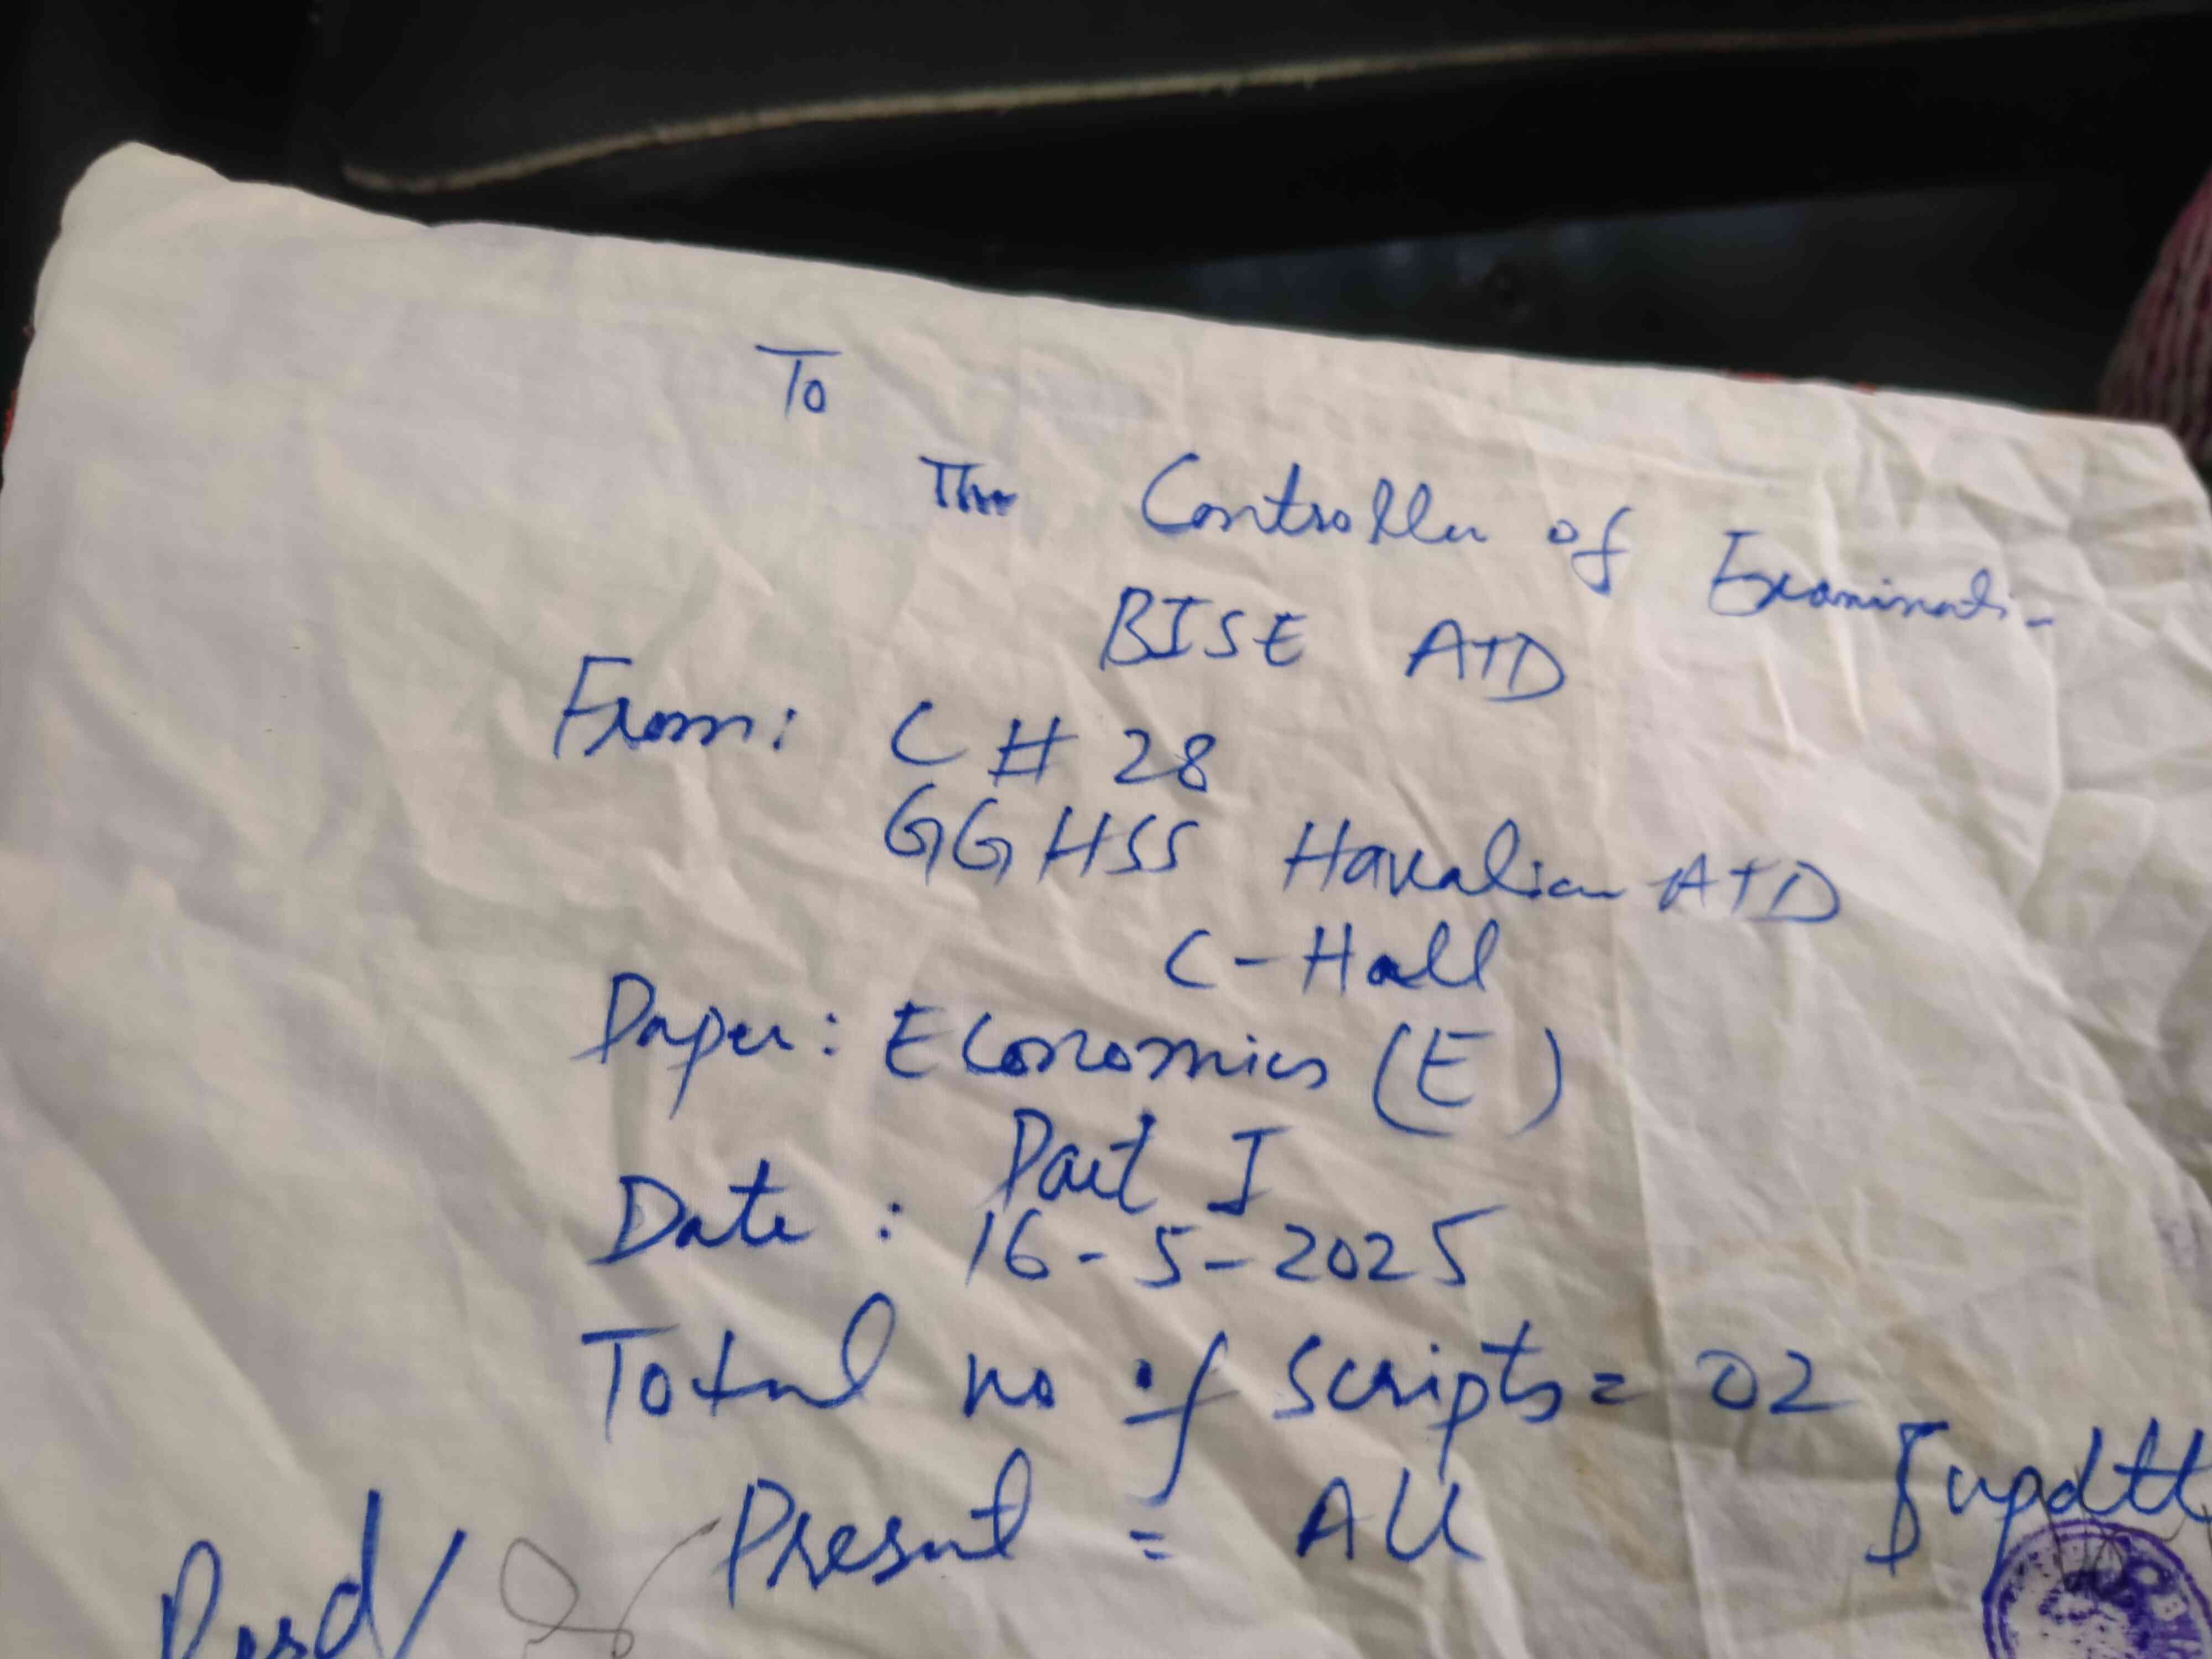 To
The Controller of Examinati-
BISE ATD
From: C # 28
GGHSS Havalian ATD
C-Hall
Paper: Economics (E)
Part I
Date: 16-5-2025
Total no of Scripts = 02
Present = All
Supdtt